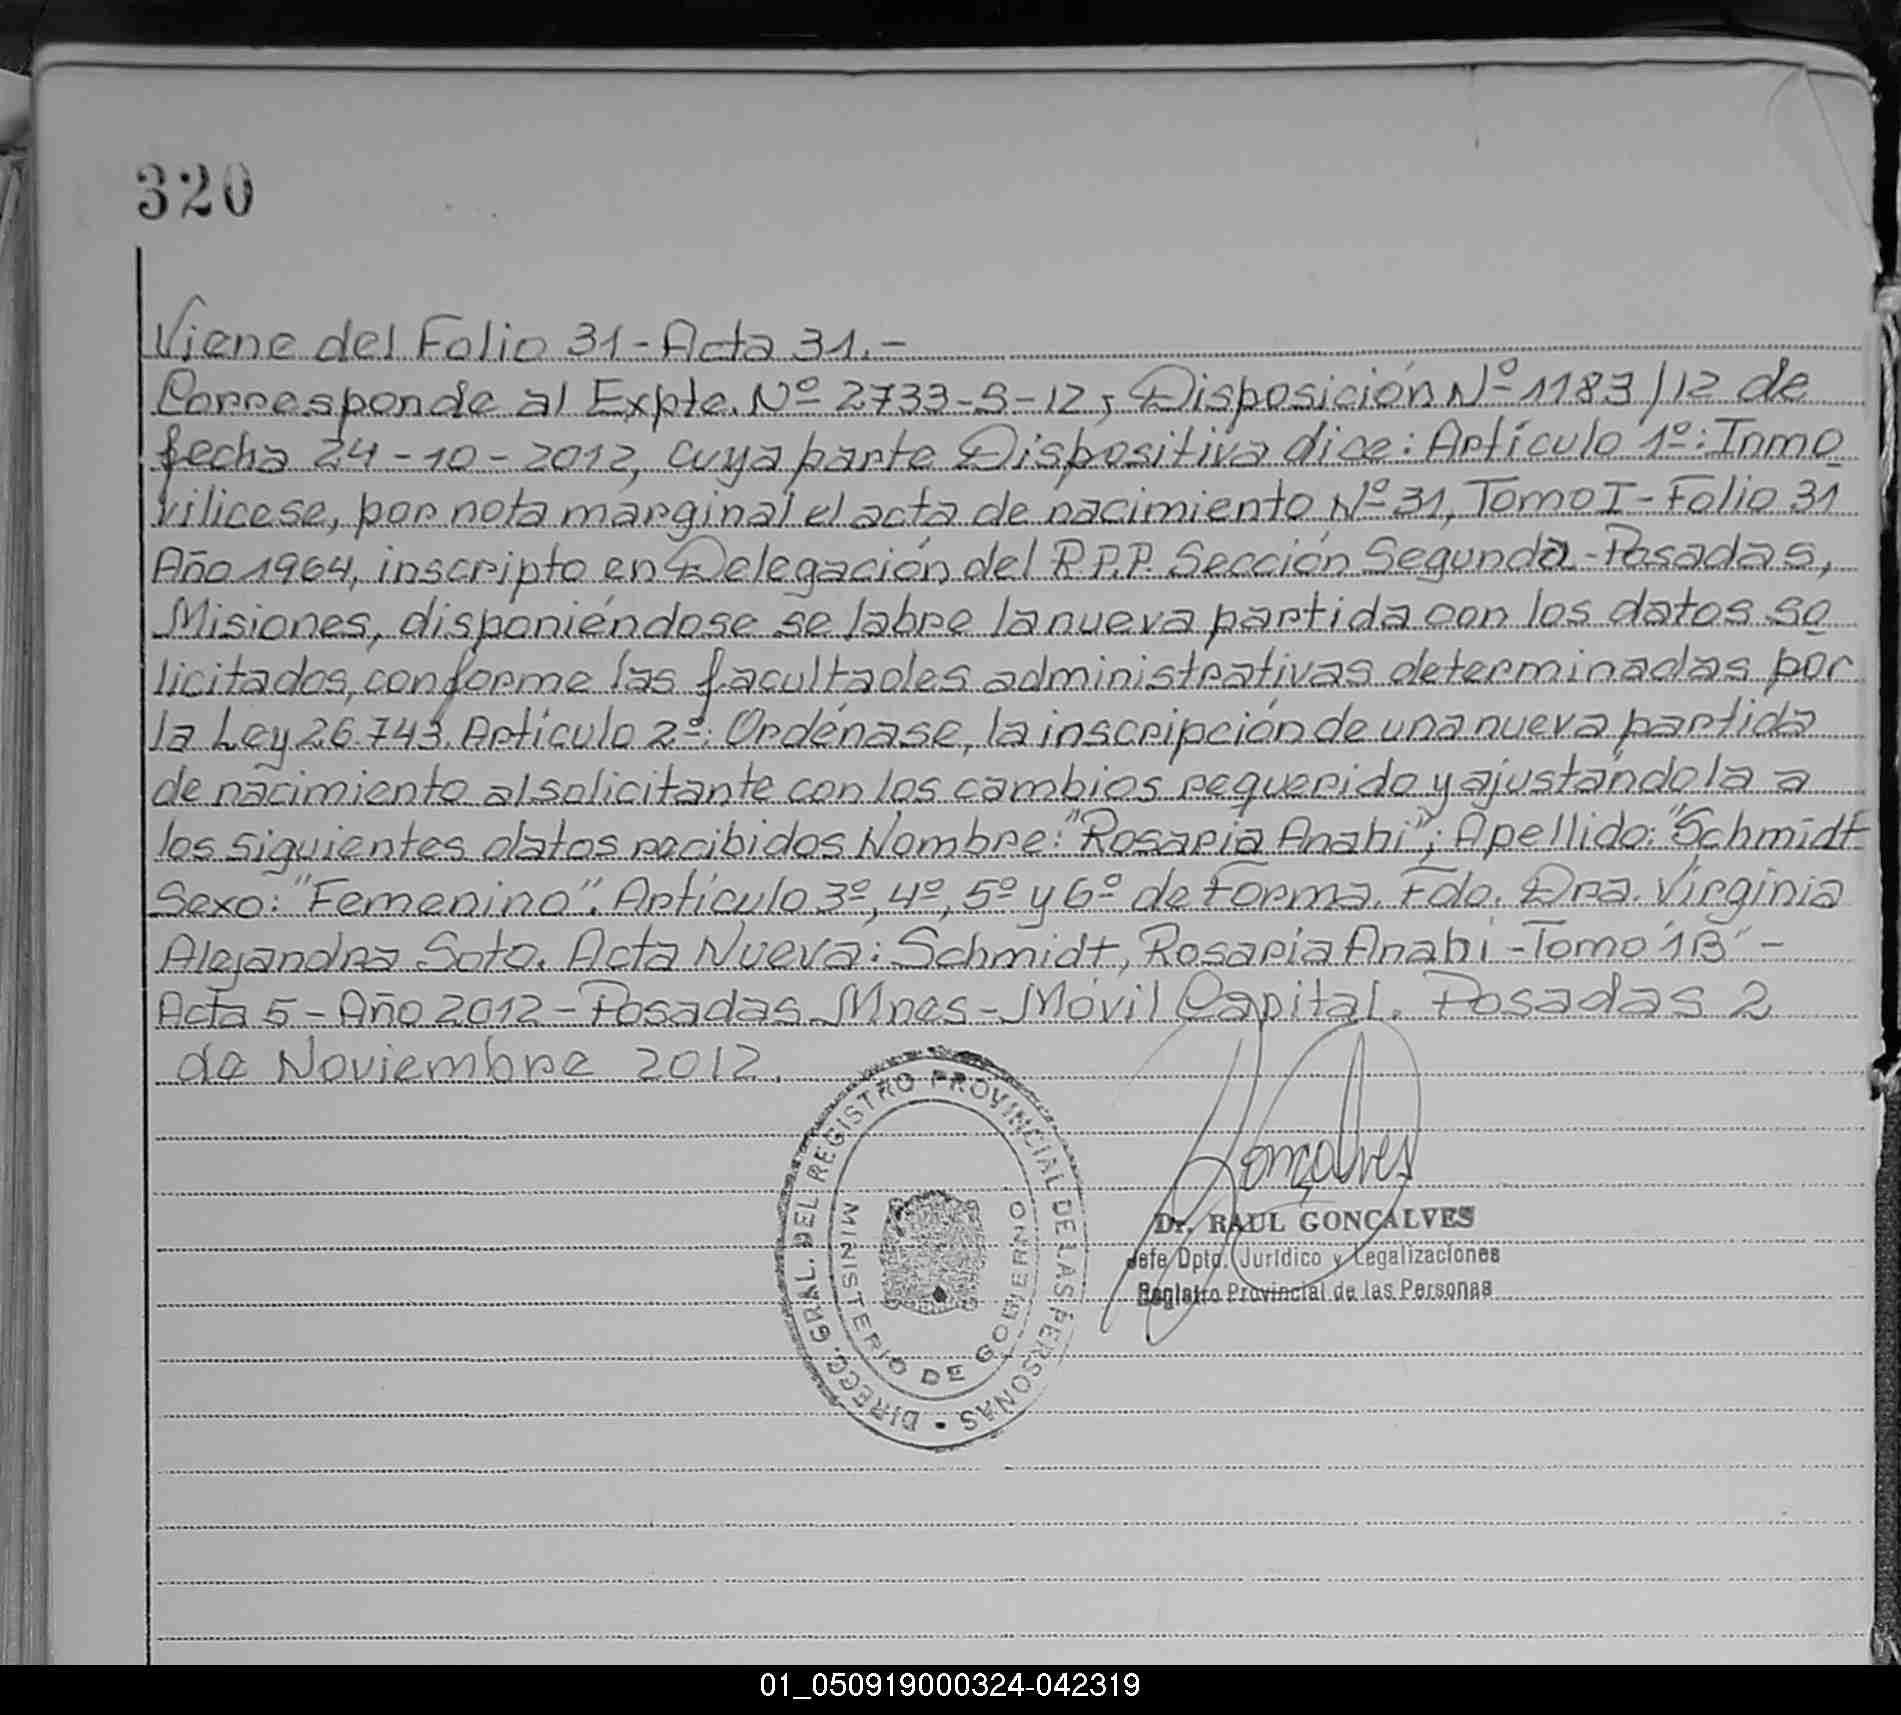 320
Viene del Folio 31 - Acta 31.-
Corresponde al Expte. Nº 2733-S-12, Disposición Nº 1183/12 de
fecha 24-10-2012, cuya parte Dispositiva dice: Artículo 1º: Inmo
vilicese, por nota marginal el acta de nacimiento Nº 31, Tomo I - Folio 31
Año 1964, inscripto en Delegación del R.P.P. Sección Segunda - Posadas,
Misiones, disponiéndose se labre la nueva partida con los datos so
licitados, conforme las facultades administrativas determinadas por
la Ley 26.743. Artículo 2º: Ordénase, la inscripción de una nueva partida
de nacimiento al solicitante con los cambios requerido y ajustándola a
los siguientes datos recibidos Nombre: "Rosaria Anahi"; Apellido: "Schmidt
Sexo: "Femenino". Artículo 3º, 4º, 5º y 6º de Forma. Fdo. Dra. Virginia
Alejandra Soto. Acta Nueva: Schmidt, Rosaria Anahi - Tomo "1B" -
Acta 5 - Año 2012 - Posadas Mnes - Móvil Capital. Posadas 2
de Noviembre 2012.
DIRECC. GRAL. DEL REGISTRO PROVINCIAL DE LAS PERSONAS
MINISTERIO DE GOBIERNO
Gonçalves
Dr. RAUL GONÇALVES
Jefe Dpto. Jurídico y Legalizaciones
Registro Provincial de las Personas
01_050919000324-042319